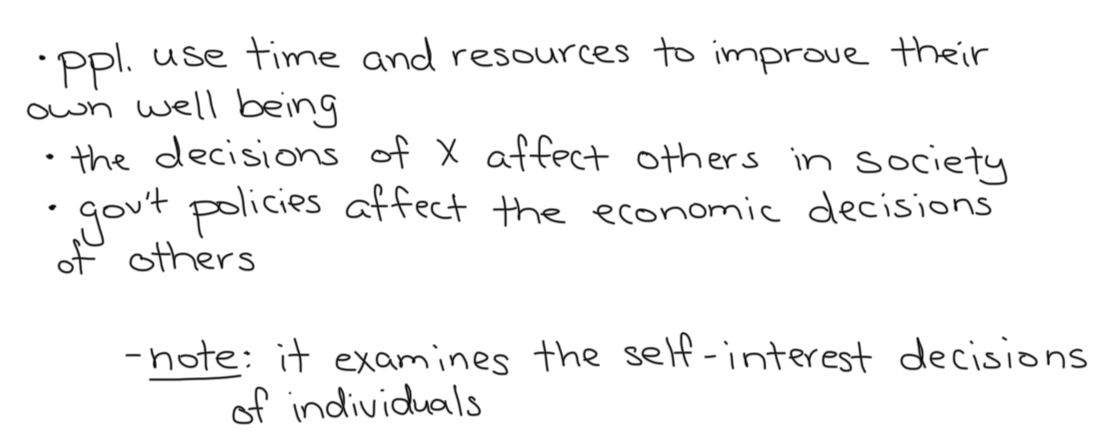 · ppl. use time and resources to improve their
own well being
· the decisions of X affect others in society
· gov't policies affect the economic decisions
of others
- note: it examines the self-interest decisions
of individuals